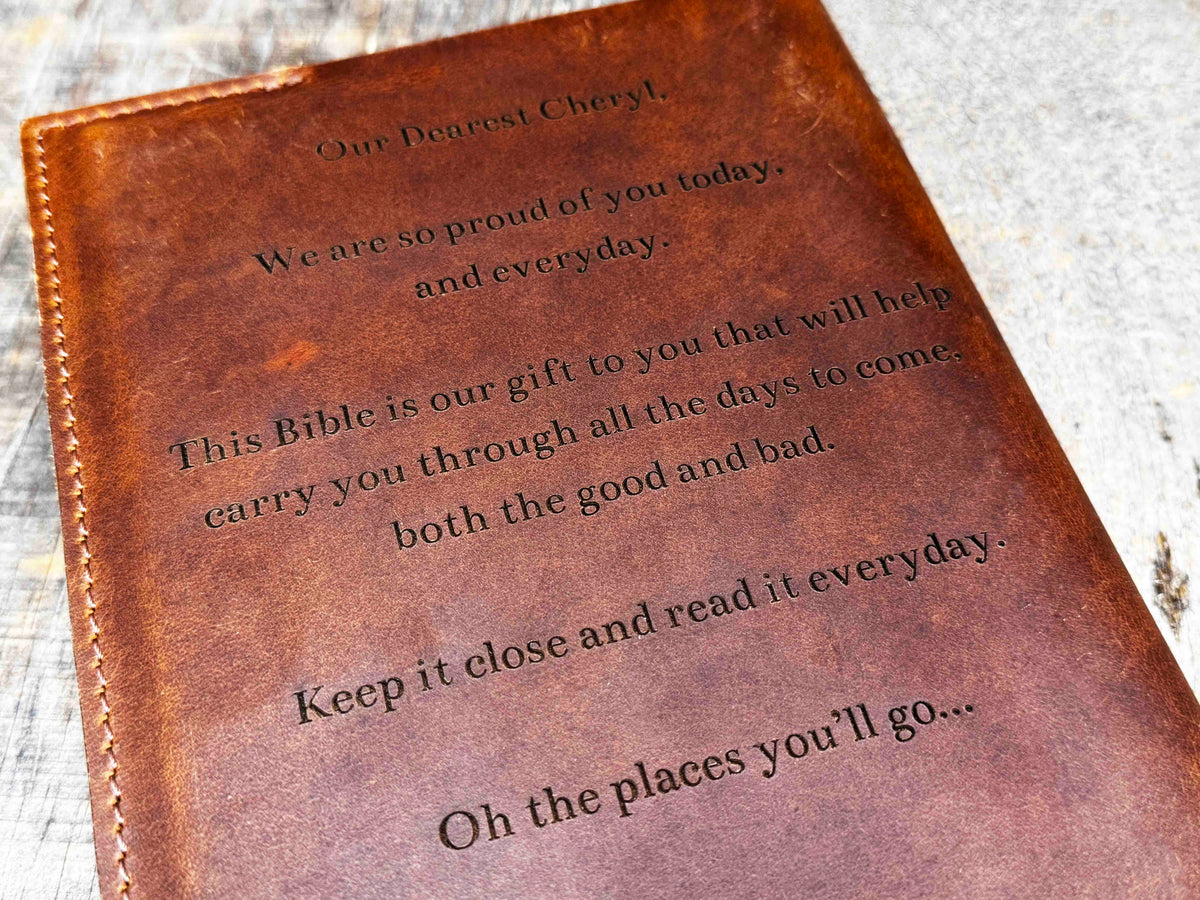 Our Dearest Cheryl,
We are so proud of you today,
and everyday.
This Bible is our gift to you that will help
carry you through all the days to come,
both the good and bad.
Keep it close and read it everyday.
Oh the places you'll go...